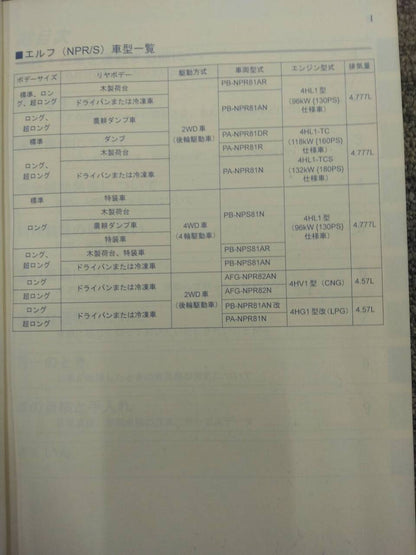 1
■エルフ（NPR/S）車型一覧
ボデーサイズ リヤボデー 駆動方式 車両型式 エンジン型式 排気量
標準、ロング、超ロング 木製荷台 2WD車（後輪駆動車） PB-NPR81AR 4HL1型（96kW {130PS}仕様車） 4.777L
ドライバンまたは冷凍車 PB-NPR81AN
ロング、超ロング 農耕ダンプ車
標準 ダンプ PA-NPR81DR 4HL1-TC（118kW {160PS}仕様車） 4HL1-TCS（132kW {180PS}仕様車） 4.777L
ロング、超ロング 木製荷台 PA-NPR81R
ドライバンまたは冷凍車 PA-NPR81N
標準 特装車 4WD車（4輪駆動車） PB-NPS81N 4HL1型（96kW {130PS}仕様車） 4.777L
ロング 木製荷台
農耕ダンプ車
特装車
ロング、超ロング 木製荷台、特装車 PB-NPS81AR
ドライバンまたは冷凍車 PB-NPS81AN
ロング 2WD車（後輪駆動車） AFG-NPR82AN 4HV1型（CNG） 4.57L
超ロング AFG-NPR82N
ロング ドライバンまたは冷凍車 PB-NPR81AN改 4HG1型改（LPG） 4.57L
超ロング PA-NPR81N